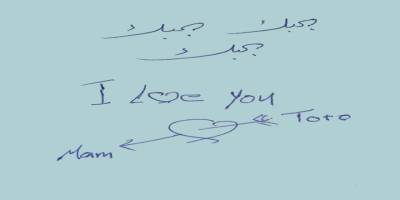 بحبك بحبك
بحبك
I Love you
Toto
Mam